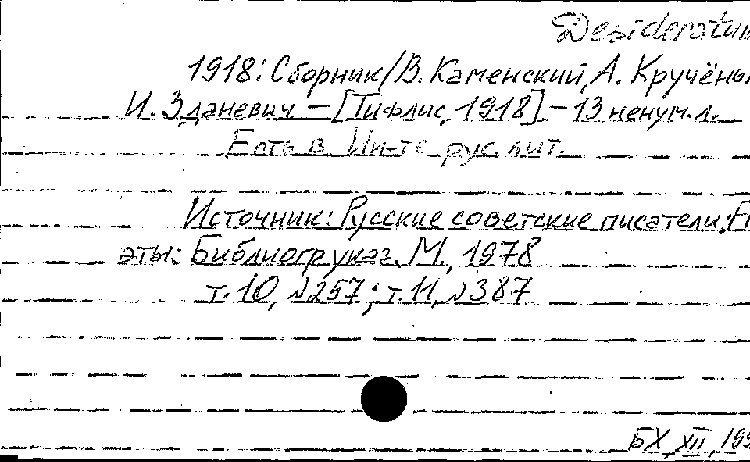 Desideratum
1918: Сборник/В. Каменский, А. Кручёны
И. Зданевич – [Тифлис, 1918] – 13 ненум. л.
Есть в Ин-те рус. лит.
Источник: Русские советские писатели;
эты: Библиогр указ. М., 1978
т. 10, №257; т. 11, №387
БХ, XII, 199